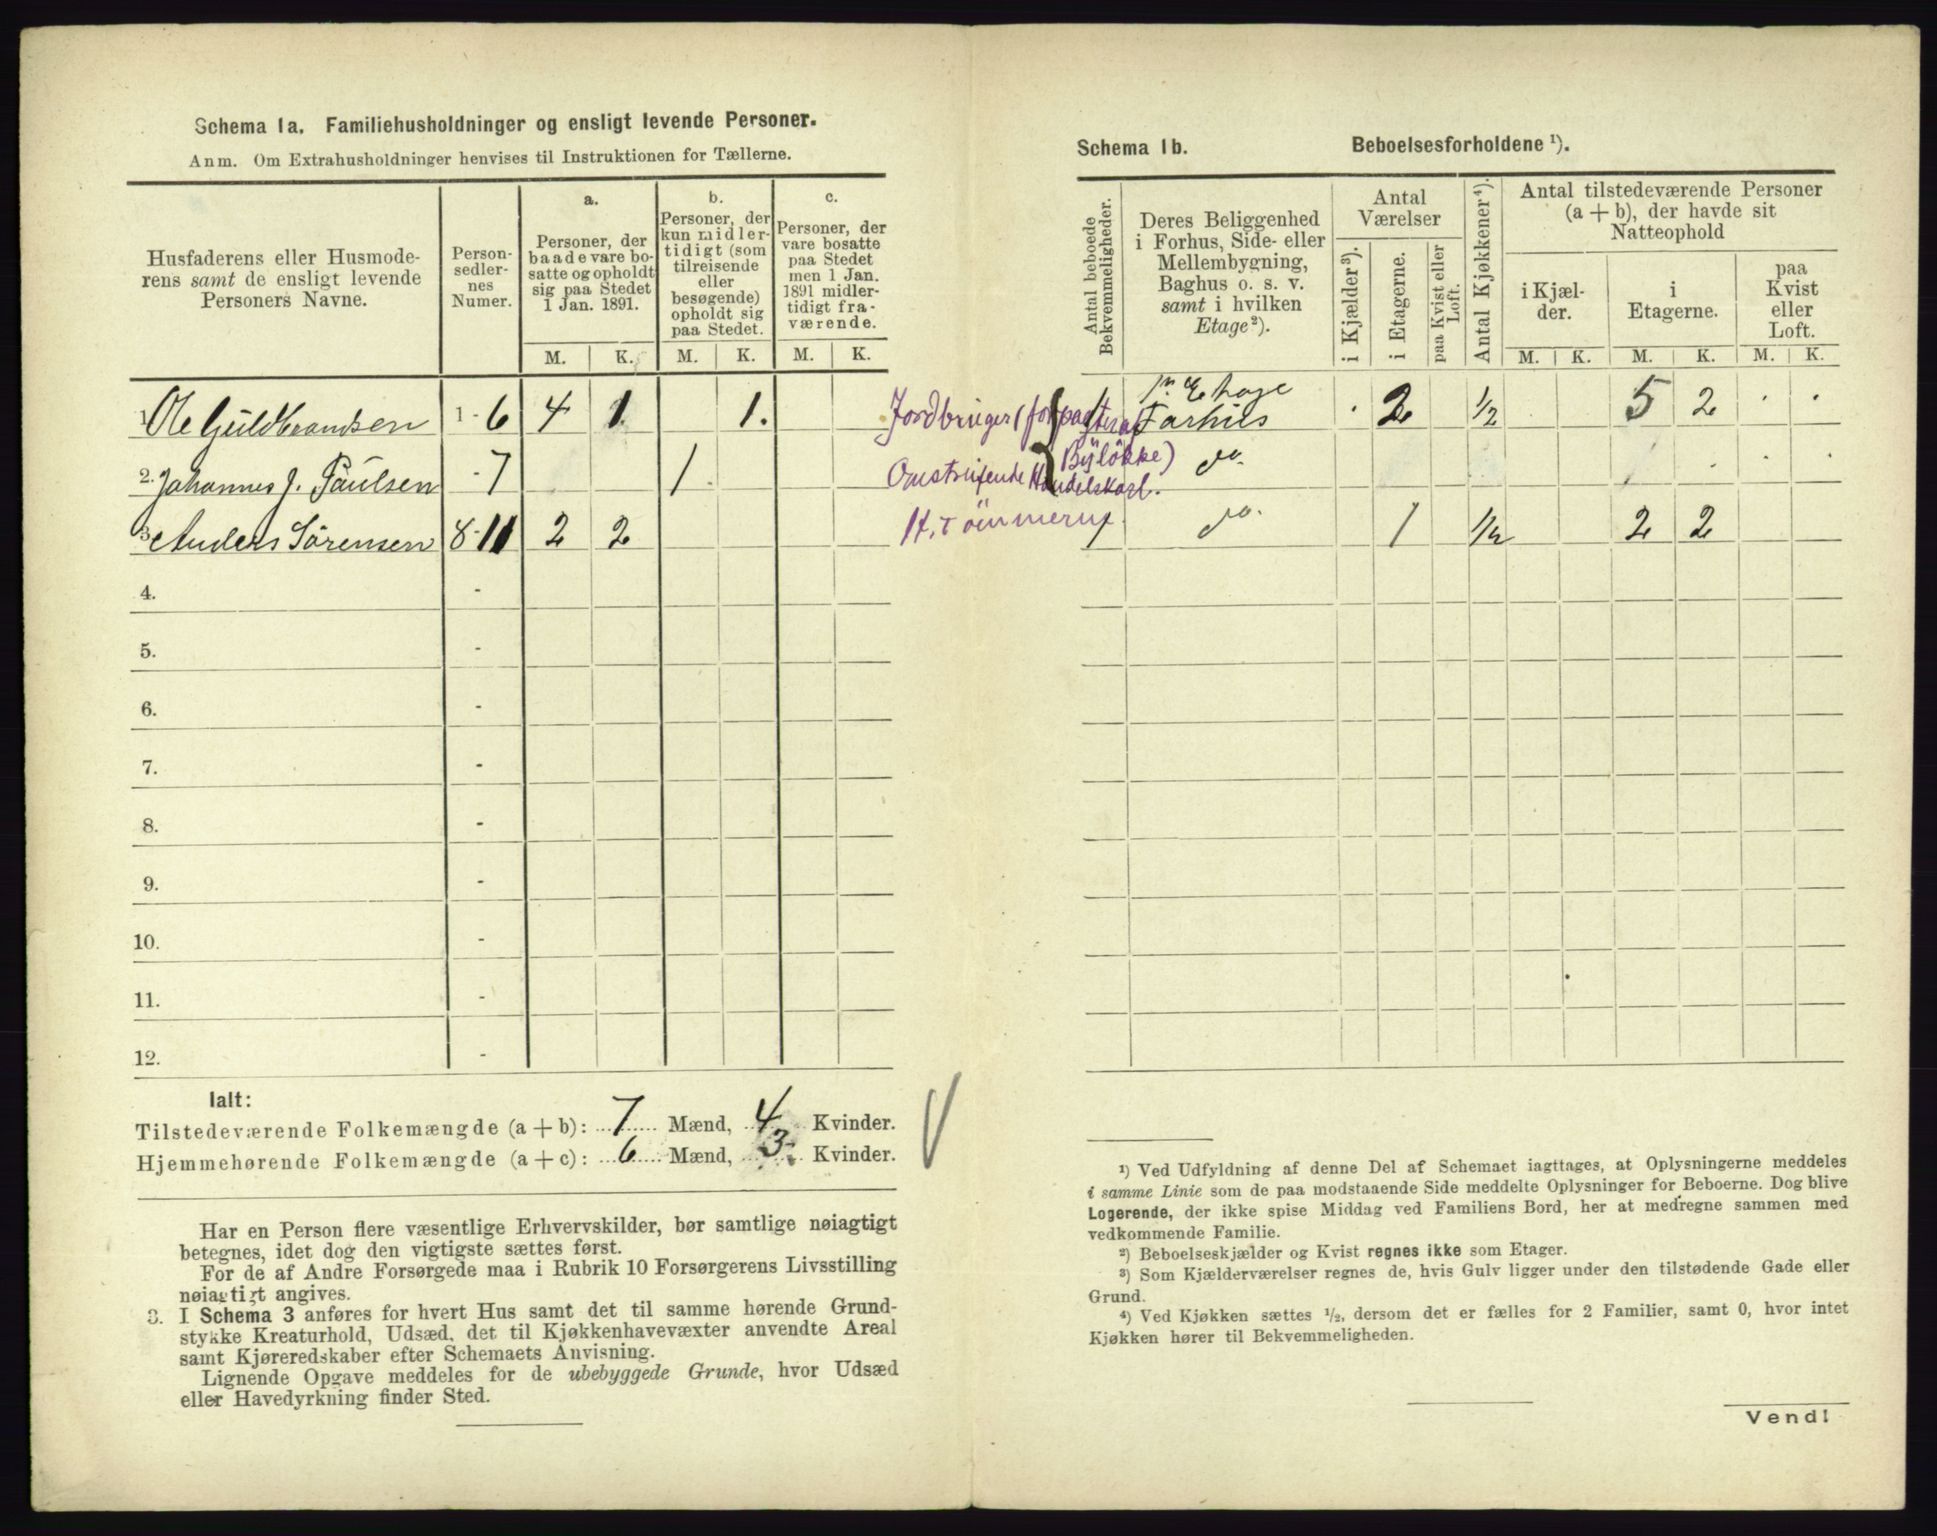 Schema 1a. Familiehusholdninger og ensligt levende Personer.
Anm. Om Extrahusholdninger henvises til Instruktionen for Tællerne.
Husfaderens eller Husmoderens samt de ensligt levende Personers Navne.
Personsedlernes Numer.
a.
Personer, der baade vare bosatte og opholdt sig paa Stedet 1 Jan. 1891.
b.
Personer, der kun midlertidigt (som tilreisende eller besøgende) opholdt sig paa Stedet.
c.
Personer, der vare bosatte paa Stedet men 1 Jan. 1891 midlertidigt fraværende.
M. K. M. K. M. K.
1. Ole Guldbrandsen 1-6 4 1. 1.
2. Johannes J. Paulsen -7 1
3. Anders Sörensen 8-11 2 2
4. -
5. -
6. -
7. -
8. -
9. -
10. -
11. -
12. -
Ialt:
Tilstedeværende Folkemængde (a + b): 7 Mænd, 4 Kvinder.
Hjemmehørende Folkemængde (a + c): 6 Mænd, 3 Kvinder.
Har en Person flere væsentlige Erhvervskilder, bør samtlige nøiagtigt
betegnes, idet dog den vigtigste sættes først.
For de af Andre Forsørgede maa i Rubrik 10 Forsørgerens Livsstilling
nøiagtigt angives.
3. I Schema 3 anføres for hvert Hus samt det til samme hørende Grund-
stykke Kreaturhold, Udsæd, det til Kjøkkenhavevæxter anvendte Areal
samt Kjøreredskaber efter Schemaets Anvisning.
Lignende Opgave meddeles for de ubebyggede Grunde, hvor Udsæd
eller Havedyrkning finder Sted.
Schema 1b. Beboelsesforholdene ¹).
Antal beboede Bekvemmeligheder.
Deres Beliggenhed i Forhus, Side- eller Mellembygning, Baghus o. s. v. samt i hvilken Etage ²).
Antal Værelser
i Kjælder ³).
i Etagerne.
paa Kvist eller Loft.
Antal Kjøkkener ⁴).
Antal tilstedeværende Personer (a + b), der havde sit Natteophold
i Kjælder.
i Etagerne.
paa Kvist eller Loft.
M. K. M. K. M. K.
Jordbruger (forpagter af
Byløkke) 1 1ⁿ Ethage
Forhus 2 1/2 5 2
Omstreifende Handelskarl. do.
H. Tömmerm. do. 1 1/2 2 2
¹) Ved Udfyldning af denne Del af Schemaet iagttages, at Oplysningerne meddeles
i samme Linie som de paa modstaaende Side meddelte Oplysninger for Beboerne. Dog blive
Logerende, der ikke spise Middag ved Familiens Bord, her at medregne sammen med
vedkommende Familie.
²) Beboelseskjælder og Kvist regnes ikke som Etager.
³) Som Kjælderværelser regnes de, hvis Gulv ligger under den tilstødende Gade eller
Grund.
⁴) Ved Kjøkken sættes ½, dersom det er fælles for 2 Familier, samt 0, hvor intet
Kjøkken hører til Bekvemmeligheden.
Vend!